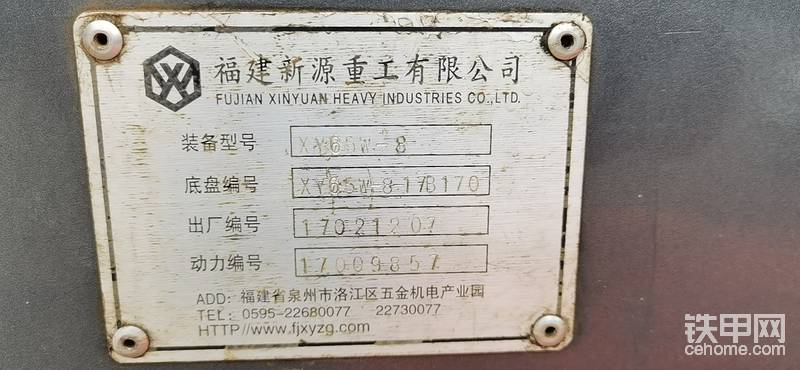 福建新源重工有限公司
FUJIAN XINYUAN HEAVY INDUSTRIES CO.,LTD.
装备型号 XY65W-8
底盘编号 XY65W-8-17B170
出厂编号 17021207
动力编号 17009857
ADD: 福建省泉州市洛江区五金机电产业园
TEL: 0595-22680077 22730077
HTTP//www.fjxyzg.com
铁甲网
cehome.com